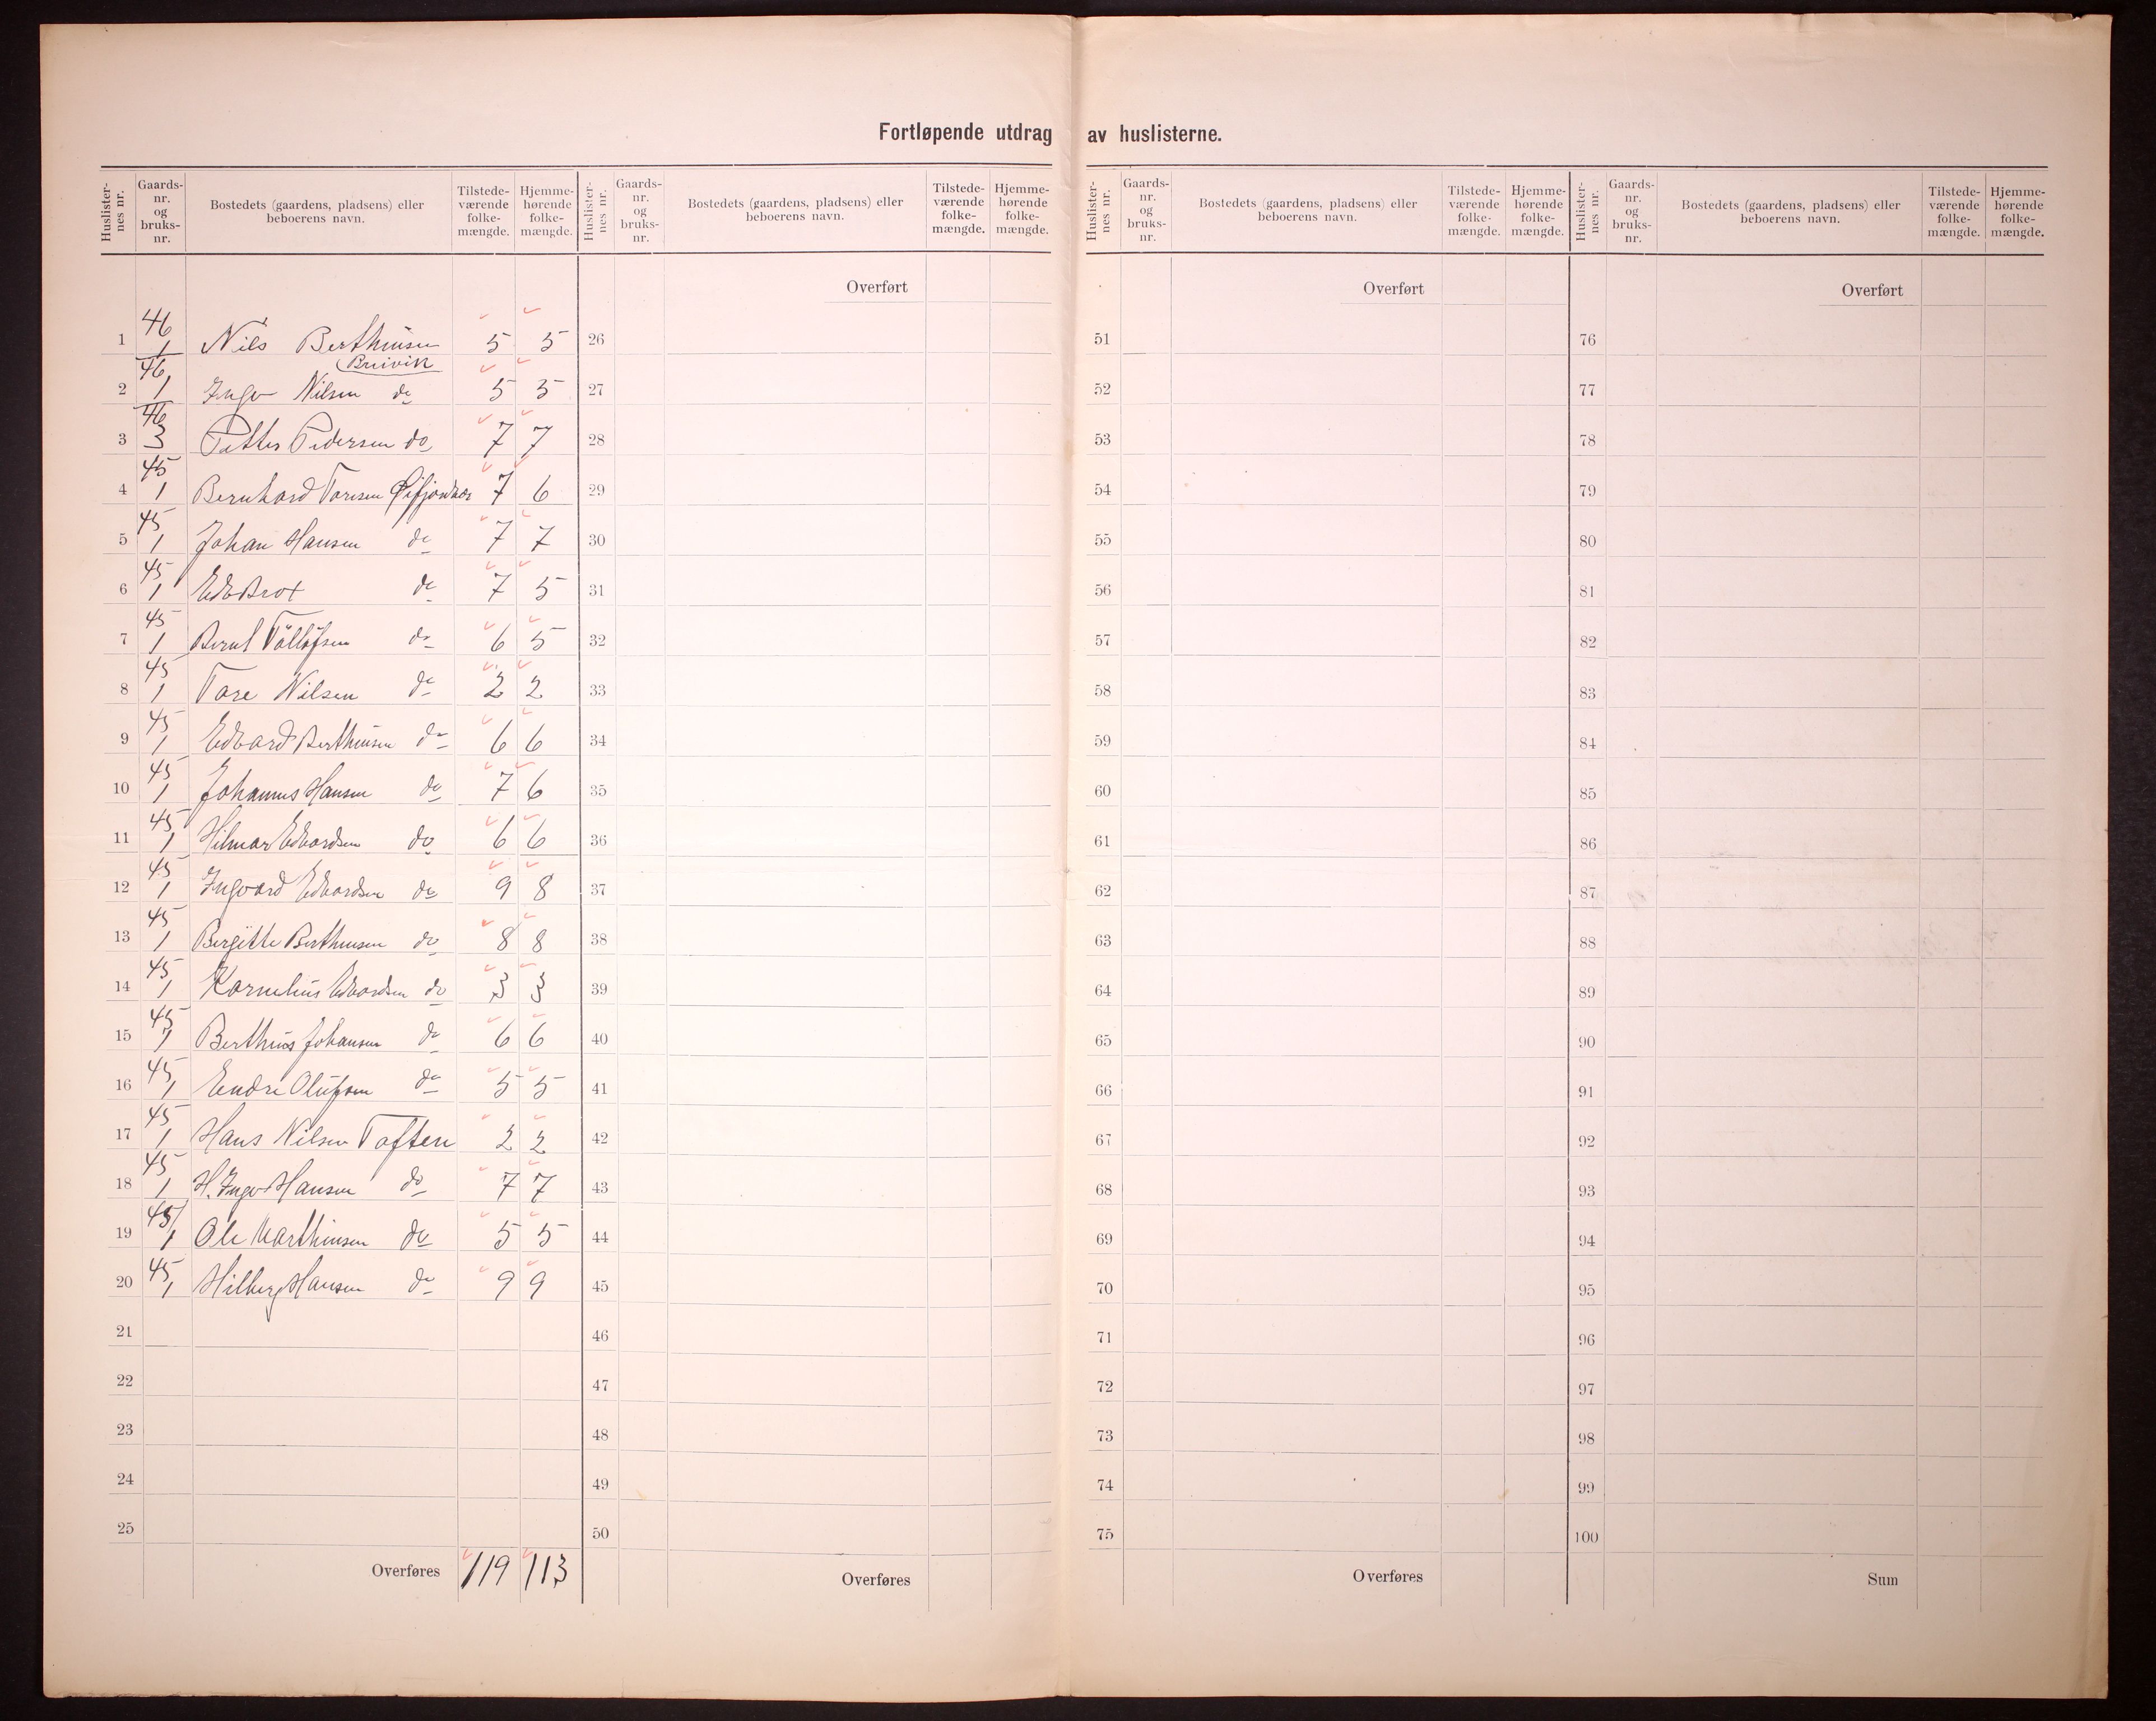 Fortløpende utdrag av huslisterne.
Huslisternes nr. Gaards-nr. og bruks-nr. Bostedets (gaardens, pladsens) eller beboerens navn. Tilstedeværende folkemængde. Hjemmehørende folkemængde.
Huslisternes nr. Gaards-nr. og bruks-nr. Bostedets (gaardens, pladsens) eller beboerens navn. Tilstedeværende folkemængde. Hjemmehørende folkemængde.
Huslisternes nr. Gaards-nr. og bruks-nr. Bostedets (gaardens, pladsens) eller beboerens navn. Tilstedeværende folkemængde. Hjemmehørende folkemængde.
Huslisternes nr. Gaards-nr. og bruks-nr. Bostedets (gaardens, pladsens) eller beboerens navn. Tilstedeværende folkemængde. Hjemmehørende folkemængde.
Overført Overført Overført
1 46/1 Nils Berthinsen 5 5 26 51 76
Breivik
2 46/1 Ingv Nilsen do 5 5 27 52 77
3 46/3 Petter Pedersen do 7 7 28 53 78
4 45/1 Bernhard Toresen 7 6 29 54 79
5 45/1 Johan Hansen do 7 7 30 55 80
6 45/1 do 7 5 31 56 81
7 45/1 Bernt Tollefsen do 6 5 32 57 82
8 45/1 Tore Nilsen do 2 2 33 58 83
9 45/1 Edvard Berthinsen do 6 6 34 59 84
10 45/1 Johannes Hansen do 7 6 35 60 85
11 45/1 Hilmar Edvardsen do 6 6 36 61 86
12 45/1 Ingvard Edvardsen do 9 8 37 62 87
13 45/1 Bergitte Berthinsen do 8 8 38 63 88
14 45/1 Kornelius Edvardsen do 3 3 39 64 89
15 45/1 Berthins Johansen do 6 6 40 65 90
16 45/1 Endre Olufsen do 5 5 41 66 91
17 45/1 Hans Nilsen Toften 2 2 42 67 92
18 45/1 H. Ingv Hansen do 7 7 43 68 93
19 45/1 Ole Marthinsen do 5 5 44 69 94
20 45/1 Hilberg Hansen do 9 9 45 70 95
21 46 71 96
22 47 72 97
23 48 73 98
24 49 74 99
25 50 75 100
Overføres 119 113 Overføres Overføres Sum